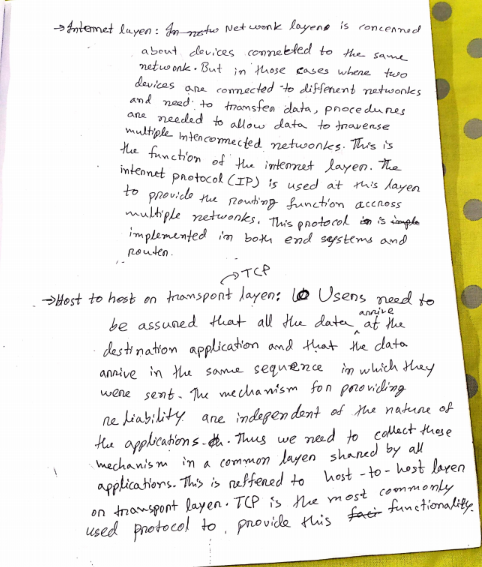 →Internet layer: In netw Network layer is concerned
about devices connected to the same
network. But in those cases where two
devices are connected to different networks
and need to transfer data, procedures
are needed to allow data to traverse
multiple interconnected networks. This is
the function of the internet layer. The
internet protocol (IP) is used at this layer
to provide the routing function accross
multiple networks. This protocol is
implemented in both end systems and
router.
→TCP
→Host to host or transport layer: Users need to
be assured that all the data arrive at the
destination application and that the data
arrive in the same sequence in which they
were sent. The mechanism for providing
reliability are independent of the nature of
the applications. Thus we need to collect those
mechanism in a common layer shared by all
applications. This is reffered to host-to-host layer
or transport layer. TCP is the most commonly
used protocol to provide this functionality.